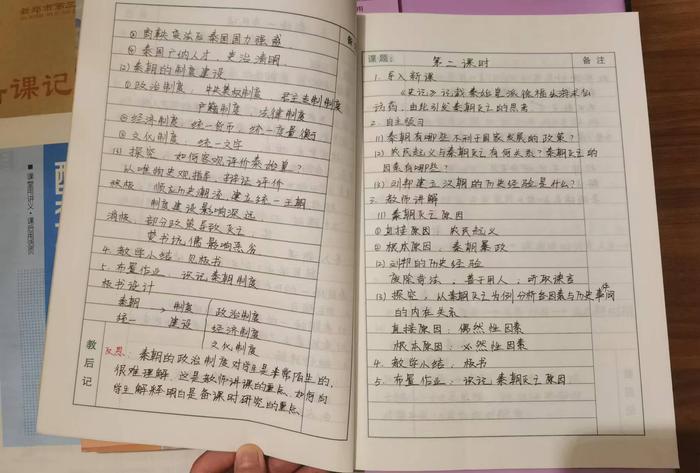 新郑市第三
备课记
课堂用讲义·课后用
备
⑤ 商鞅变法后秦国国力强盛
⑥ 秦国广纳人才，吏治清明
(2) 秦朝的制度建设
① 政治制度：中央集权制度 君主专制制度
户籍制度 法律制度
② 经济制度：统一货币、统一度量衡
③ 文化制度：统一文字
(3) 探究：如何客观评价秦始皇？
以唯物史观指导，辩证评价
积极 顺应历史潮流，建立统一王朝
制度建设影响深远
消极 部分政策导致灭亡
焚书坑儒影响恶劣
4. 教学小结：见板书
5. 布置作业：识记秦朝制度
板书设计
秦朝 → 制度 政治制度
统一 建设 经济制度
文化制度
教后记
反思：秦朝的政治制度对学生是非常陌生的，
很难理解，这是教师讲课的重点，如何向
学生解释明白是备课时研究的重点
课题：第二课时
备注
1. 导入新课
《史记》记载秦始皇派徐福出海求仙
访药，由此引发秦朝灭亡的思考
2. 自主练习
(1) 秦朝有哪些不利于国家发展的政策？
(2) 农民起义与秦朝灭亡有何关系？秦朝灭亡的
因素有哪些？
(3) 刘邦建立汉朝的历史经验是什么？
3. 教师讲解
(1) 秦朝灭亡原因
① 直接原因：农民起义
② 根本原因：秦朝暴政
(2) 刘邦的历史经验
废除苛法，善于用人，听取谏言
(3) 探究：从秦朝灭亡为例分析各因素与历史事件
的内在关系
直接原因：偶然性因素
根本原因：必然性因素
4. 教学小结：板书
5. 布置作业：识记秦朝灭亡原因